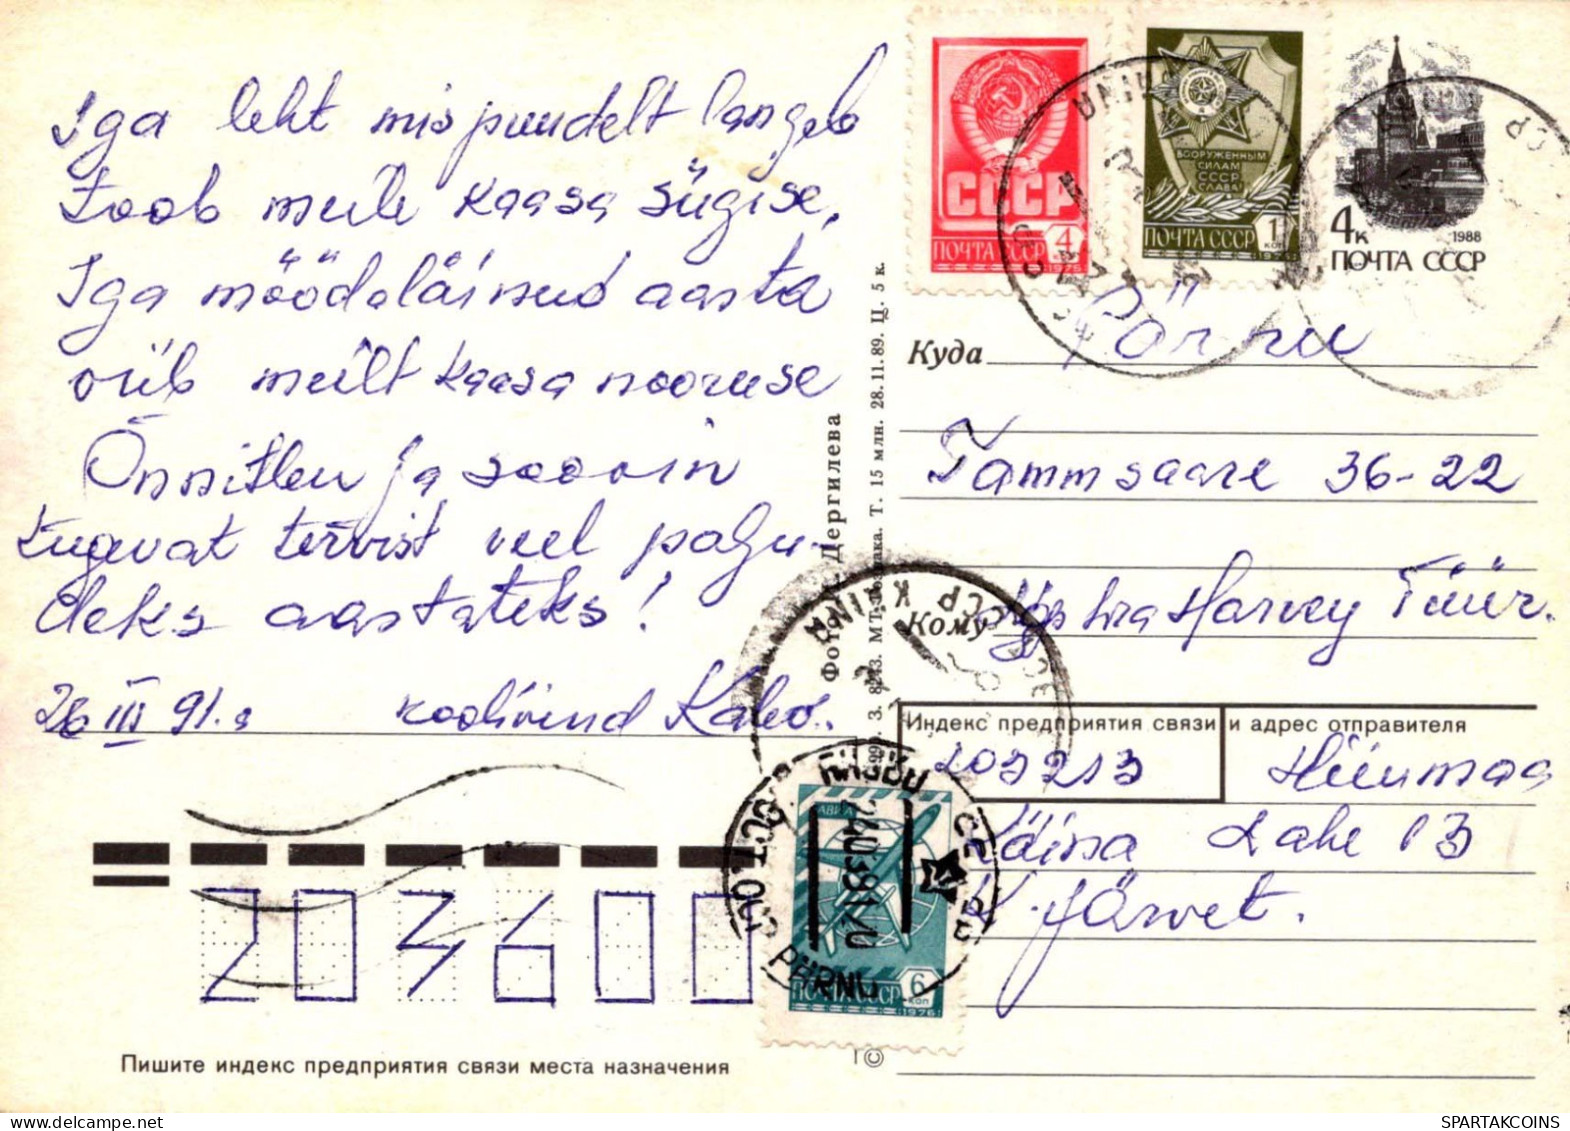 Iga leht mis puudelt langeb
toob meile kaasa sügise.
Iga möödaläinud aasta
viib meilt kaasa nooruse
Õnnitlen ja soovin
tugevat tervist veel palju-
deks aastateks!
26 III 91.a koolivend Kalev.
203600
Пишите индекс предприятия связи места назначения
СССР
ПОЧТА СССР 4
1975
ВООРУЖЕННЫМ
СИЛАМ
СССР
СЛАВА!
ПОЧТА СССР 1 КОП
1976
4к 1988
ПОЧТА СССР
Куда Pärnu
Tammsaare 36-22
Кому Harvey Tüür.
Индекс предприятия связи и адрес отправителя
203213 Hiiumaa
Käina Lahe 13
K. Järvet.
Дергилева
Т. 15 млн. 28.11.89. Ц. 5 к.
KÄINA
АВИА
ПОЧТА СССР 6 КОП
1976
PÄRNU
©
SPARTAKCOINS.COM